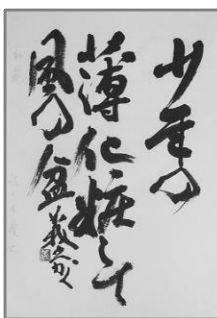 少年の
薄化粧して
風の盆 義